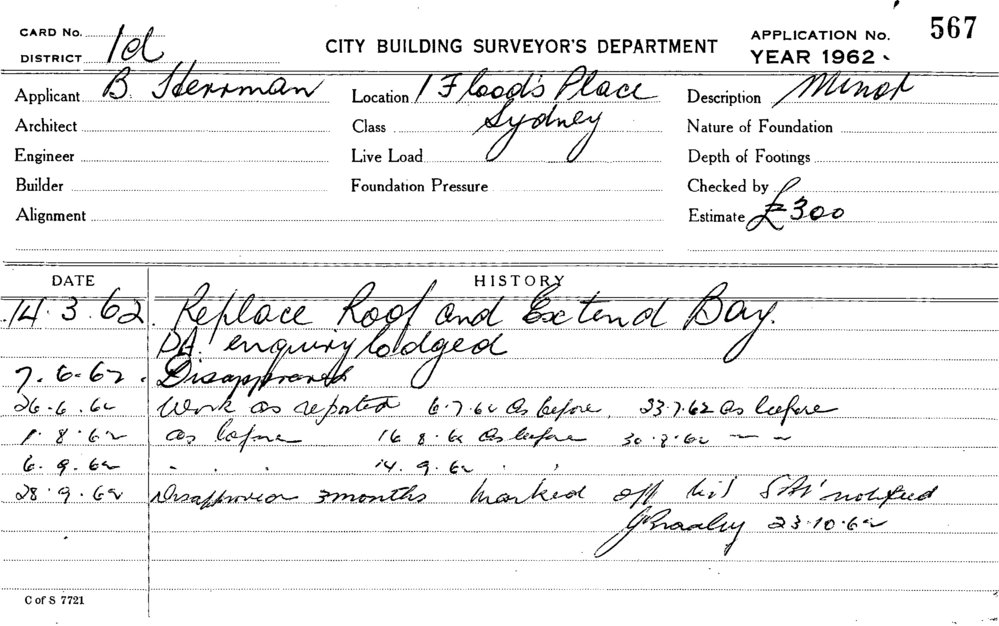 CARD No. 1d
DISTRICT
CITY BUILDING SURVEYOR'S DEPARTMENT
APPLICATION No. 567
YEAR 1962
Applicant B. Herrman
Location 1 Flood's Place
Sydney
Description Minor
Architect
Class
Nature of Foundation
Engineer
Live Load
Depth of Footings
Builder
Foundation Pressure
Checked by
Alignment
Estimate £300
DATE HISTORY
14.3.62. Replace Roof and Extend Bay.
DA. enquiry lodged
7.6.62. Disapproved
26.6.62 Work as reported 6.7.62 As before. 23.7.62 as before
1.8.62 as before 16.8.62 As before 30.8.62 — —
6.9.62 . . . 14.9.62 . .
28.9.62 Disapproved 3 months marked off notified
23.10.62
C of S 7721